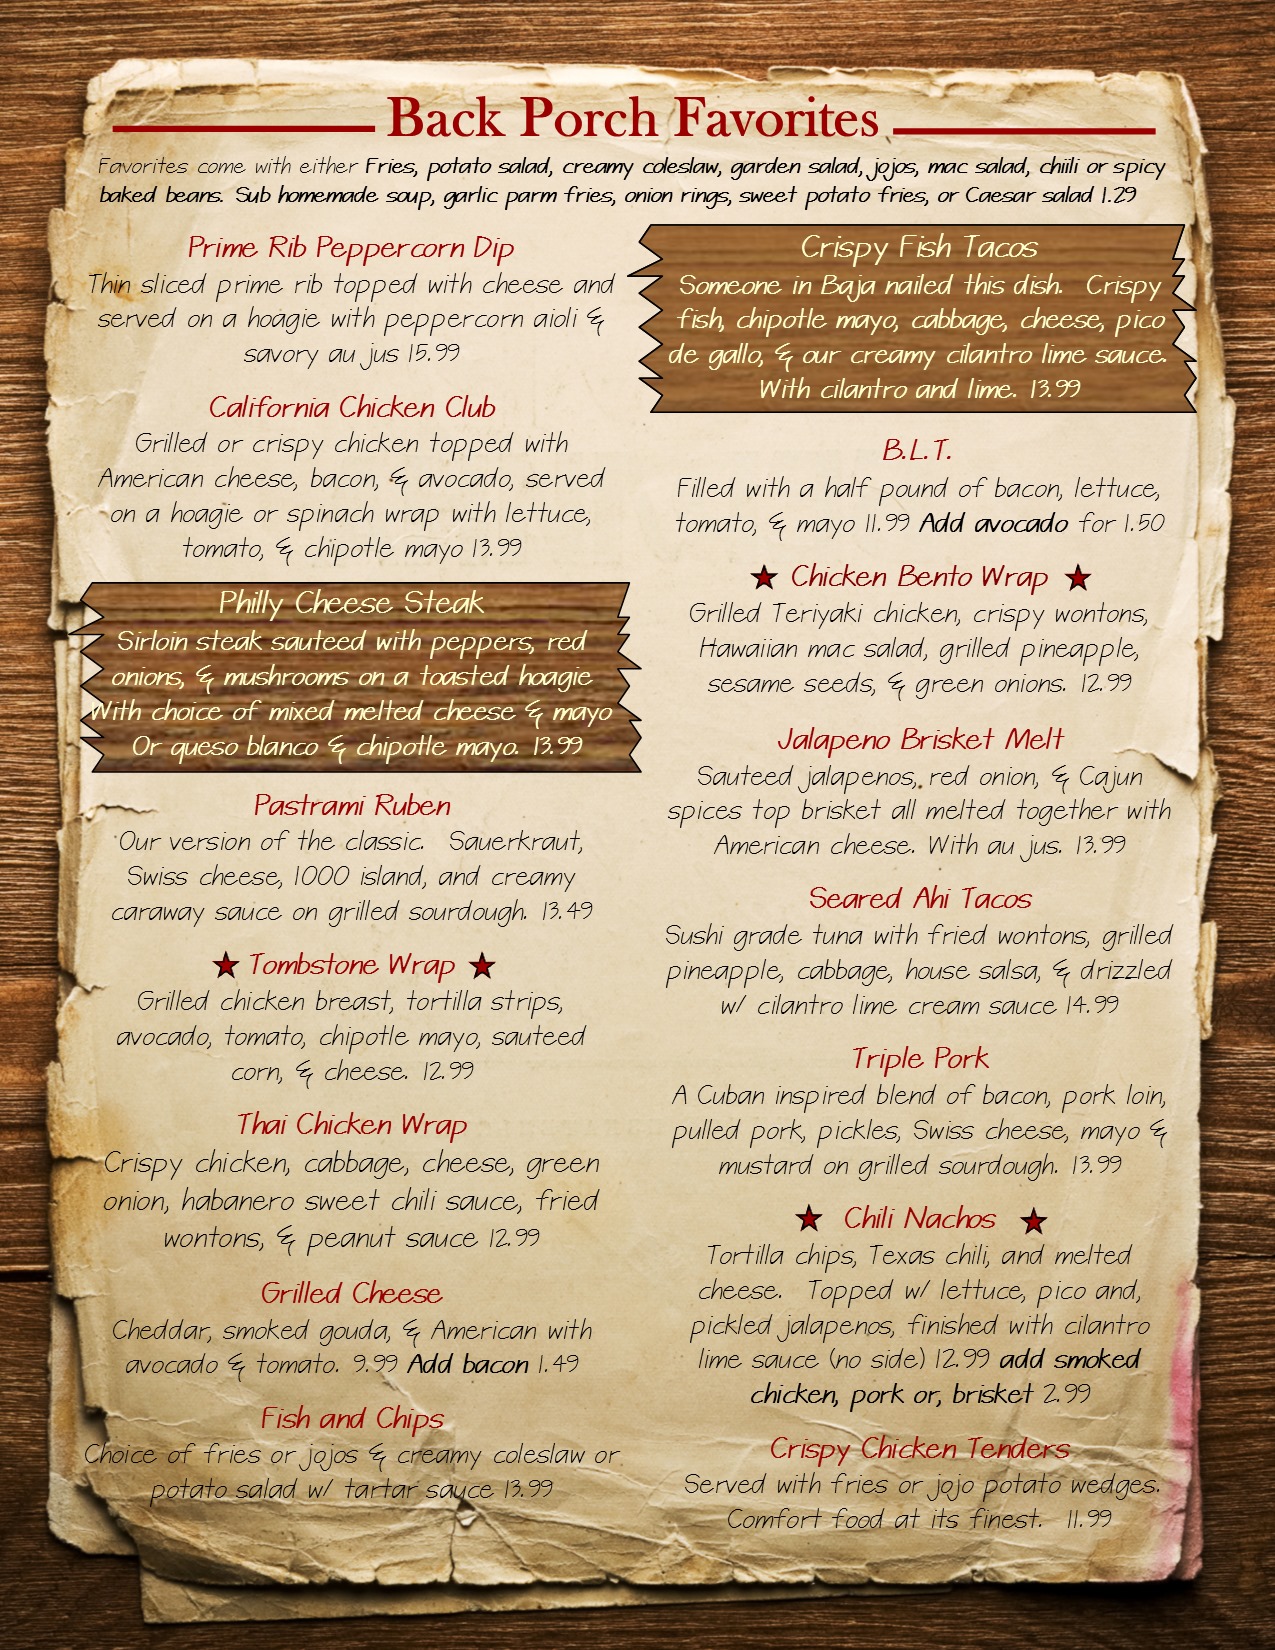 Back Porch Favorites
Favorites come with either Fries, potato salad, creamy coleslaw, garden salad, jojos, mac salad, chiili or spicy
baked beans. Sub homemade soup, garlic parm fries, onion rings, sweet potato fries, or Caesar salad 1.29
Prime Rib Peppercorn Dip
Thin sliced prime rib topped with cheese and
served on a hoagie with peppercorn aioli &
savory au jus 15.99
California Chicken Club
Grilled or crispy chicken topped with
American cheese, bacon, & avocado, served
on a hoagie or spinach wrap with lettuce,
tomato, & chipotle mayo 13.99
Philly Cheese Steak
Sirloin steak sauteed with peppers, red
onions, & mushrooms on a toasted hoagie
With choice of mixed melted cheese & mayo
Or queso blanco & chipotle mayo. 13.99
Pastrami Ruben
Our version of the classic. Sauerkraut,
Swiss cheese, 1000 island, and creamy
caraway sauce on grilled sourdough. 13.49
Tombstone Wrap
Grilled chicken breast, tortilla strips,
avocado, tomato, chipotle mayo, sauteed
corn, & cheese. 12.99
Thai Chicken Wrap
Crispy chicken, cabbage, cheese, green
onion, habanero sweet chili sauce, fried
wontons, & peanut sauce 12.99
Grilled Cheese
Cheddar, smoked gouda, & American with
avocado & tomato. 9.99 Add bacon 1.49
Fish and Chips
Choice of fries or jojos & creamy coleslaw or
potato salad w/ tartar sauce 13.99
Crispy Fish Tacos
Someone in Baja nailed this dish. Crispy
fish, chipotle mayo, cabbage, cheese, pico
de gallo, & our creamy cilantro lime sauce.
With cilantro and lime. 13.99
B.L.T.
Filled with a half pound of bacon, lettuce,
tomato, & mayo 11.99 Add avocado for 1.50
Chicken Bento Wrap
Grilled Teriyaki chicken, crispy wontons,
Hawaiian mac salad, grilled pineapple,
sesame seeds, & green onions. 12.99
Jalapeno Brisket Melt
Sauteed jalapenos, red onion, & Cajun
spices top brisket all melted together with
American cheese. With au jus. 13.99
Seared Ahi Tacos
Sushi grade tuna with fried wontons, grilled
pineapple, cabbage, house salsa, & drizzled
w/ cilantro lime cream sauce 14.99
Triple Pork
A Cuban inspired blend of bacon, pork loin,
pulled pork, pickles, Swiss cheese, mayo &
mustard on grilled sourdough. 13.99
Chili Nachos
Tortilla chips, Texas chili, and melted
cheese. Topped w/ lettuce, pico and,
pickled jalapenos, finished with cilantro
lime sauce (no side) 12.99 add smoked
chicken, pork or, brisket 2.99
Crispy Chicken Tenders
Served with fries or jojo potato wedges.
Comfort food at its finest. 11.99